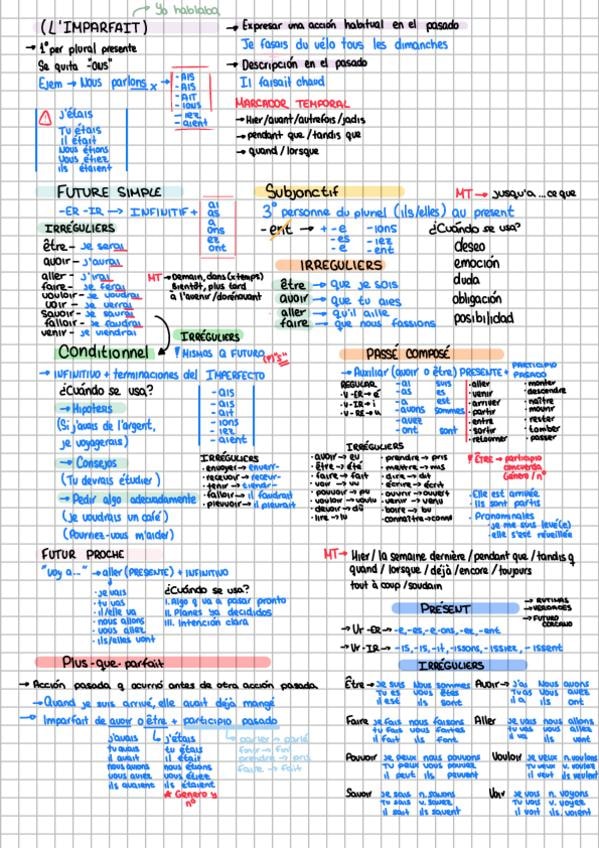 Yo hablaba
(L'IMPARFAIT)
→ 1° per plural presente
Se quita "ous"
Ejem → Nous parlons x →
- AIS
- AIS
- AIT
- IONS
- IEZ
- aient
→ Expresar una acción habitual en el pasado
Je fasais du vélo tous les dimanches
→ Descripción en el pasado
Il faisait chaud
MARCADOR TEMPORAL
→ Hier/avant/autrefois/jadis
→ pendant que / tandis que
→ quand / lorsque
⚠ J'étais
Tu étais
il était
Nous étions
Vous étiez
ils étaient
FUTURE SIMPLE
-ER -IR → INFINITIF +
ai
as
a
ons
ez
ont
IRRÉGULIERS
être - je serai
avoir - j'aurai
aller - j'irai
faire - je ferai
vouloir - je voudrai
voir - je verrai
savoir - je saurai
falloir - je faudrai
venir - je viendrai
MT → Demain, dans (x temps)
Bientôt, plus tard
à l'avenir / dorénavant
Subjonctif
MT → jusqu'a ... ce que
3° personne du pluriel (ils/elles) au present
-ent → + -e -ions
-es -iez
-e -ent
¿Cuándo se usa?
deseo
emoción
duda
obligación
posibilidad
IRREGULIERS
être → que je sois
avoir → que tu aies
aller → qu'il aille
faire → que nous fassions
Conditionnel
IRRÉGULIERS
! MISMOS A FUTURO (+)"s"
→ INFINITIVO + terminaciones del IMPERFECTO
- ais
- ais
- ait
- ions
- iez
- aient
¿Cuándo se usa?
→ Hipotesis
(Si j'avais de l'argent,
je voyagerais)
→ Consejos
(Tu devrais étudier)
→ Pedir algo adecuadamente
(Je voudrais un café)
(Pourriez-vous m'aider)
IRRÉGULIERS
· envoyer → enverr-
· recevoir → recevr-
· tenir → tiendr-
· falloir → il faudrait
· pleuvoir → il pleuvrait
PASSÉ COMPOSÉ
→ Auxiliar (avoir o être) PRESENTE + PARTICIPIO PASADO
REGULAR
· V-ER → é
· V-IR → i
· V-RE → u
-ai suis
-as es
-a est
-avons sommes
-avez
-ont sont
· aller
· venir
· arriver
· partir
· entrer
· sortir
· retourner
· monter
· descendre
· naître
· mourir
· rester
· tomber
· passer
IRRÉGULIERS
· avoir → eu
· être → été
· faire → fait
· voir → vu
· pouvoir → pu
· vouloir → voulu
· devoir → dû
· lire → lu
· prendre → pris
· mettre → mis
· dire → dit
· écrire → écrit
· ouvrir → ouvert
· venir → venu
· boire → bu
· connaître → connu
! ÊTRE → participio
concuerda
Género / n°
· Elle est arrivée
· ils sont partis
· Pronominales
· je me suis levé(e)
· elle s'est réveillée
FUTUR PROCHE
"voy a..." → aller (PRESENTE) + INFINITIVO
· je vais
· tu vas
· il/elle va
· nous allons
· vous allez
· ils/elles vont
¿Cuándo se usa?
I. Algo q va a pasar pronto
II. Planes ya decididos
III. Intención clara
MT → Hier / la semaine dernière / pendant que / tandis q
quand / lorsque / déjà / encore / toujours
tout à coup / soudain
PRESENT
→ RUTINAS
→ VERDADES
→ FUTURO CERCANO
→ Ur -ER → -e, -es, -e, -ons, -ez, -ent
→ Ur -IR → -is, -is, -it, -issons, -issiez, -issent
IRRÉGULIERS
Être → Je suis Nous sommes
Tu es vous êtes
il est ils sont
Avoir → J'ai Nous avons
Tu as vous avez
il a ils ont
Faire Je fais nous faisons
tu fais vous faites
il fait ils font
Aller Je vais nous allons
tu vas vous allez
il va ils vont
Pouvoir Je peux nous pouvons
Tu peux vous pouvez
il peut ils peuvent
Vouloir Je veux n.voulons
Tu veux v. voulez
il veut ils veulent
Savoir Je sais n. savons
Tu sais v. savez
il sait ils savent
Voir Je vois n. voyons
Tu vois v. voyez
il voit ils voient
Plus-que-parfait
→ Acción pasada q ocurrió antes de otra acción pasada
→ Quand je suis arrivé, elle avait déjà mangé
→ Imparfait de avoir o être + participio pasado
j'avais
tu avais
il avait
nous avions
vous aviez
ils avaient
j'étais
tu étais
il était
nous étions
vous étiez
ils étaient
* Género y n°
parler → parlé
finir → fini
prendre → pris
faire → fait